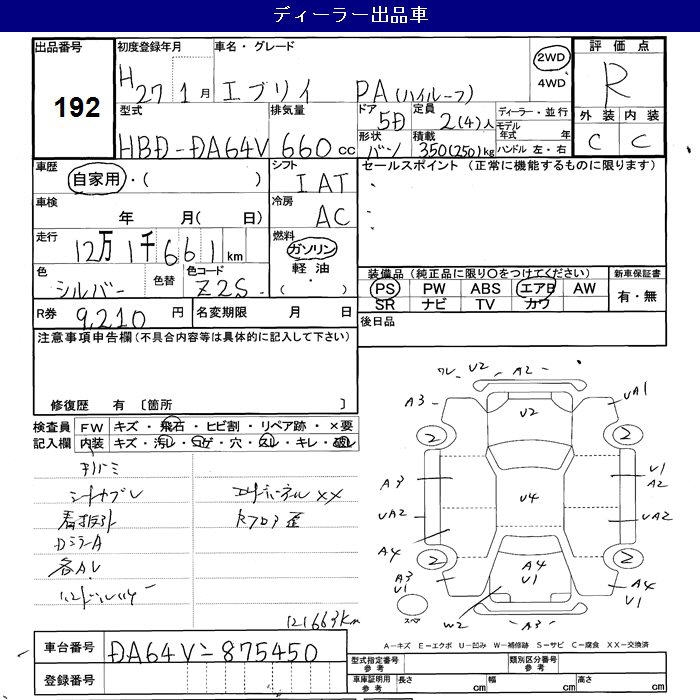 ディーラー出品車
出品番号 初度登録年月 車名・グレード 評価点
192
H27 1月 エブリイ PA(ハイルーフ) 2WD 4WD R
型式 排気量 ドア 定員 ディーラー・並行 外装 内装
HBD-DA64V 660cc 5D 2(4)人 モデル年式 年 C C
形状 積載 ハンドル 左・右
バン 350(250)kg
車歴 シフト セールスポイント(正常に機能するものに限ります)
自家用・( ) IAT
車検 冷房
年 月( 日) AC
走行 燃料
12万1千661km ガソリン
色 色替 色コード 軽油
シルバー Z2S ・( )
装備品(純正品に限り○をつけてください) 新車保証書
PS PW ABS エアB AW 有・無
SR ナビ TV カワ
R券 9,210円 名変期限 月 日 後日品
注意事項申告欄(不具合内容等は具体的に記入して下さい)
修復歴 有 〔箇所 〕
検査員 FW キズ・飛石・ヒビ割・リペア跡・×要
記入欄 内装 キズ・汚レ・コゲ・穴・スレ・キレ・破レ
DミラーA
各カレ
121663km
ワレ U2 A2
A3 U2 UA1
2 2
A3 U4 U1 A2
UA2 UA2
A4 2 A4 U1 2
A3 U1 A4 U1
スペア W2 A3
A-キズ E-エクボ U-凹み W-補修跡 S-サビ C-腐食 XX-交換済
車台番号 DA64V-875450
登録番号
型式指定番号 参考 類別区分番号 参考
車庫証明用 参考 長さ cm 幅 cm 高さ cm